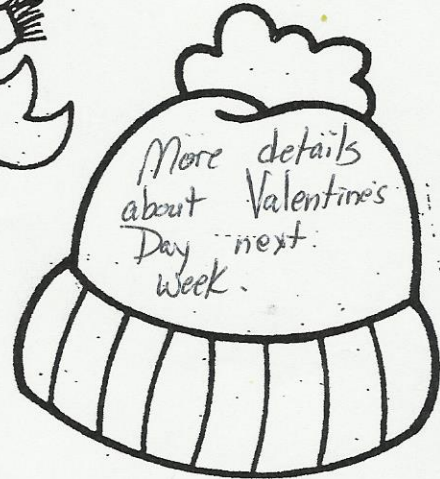 More details
about Valentine's
Day next
week.